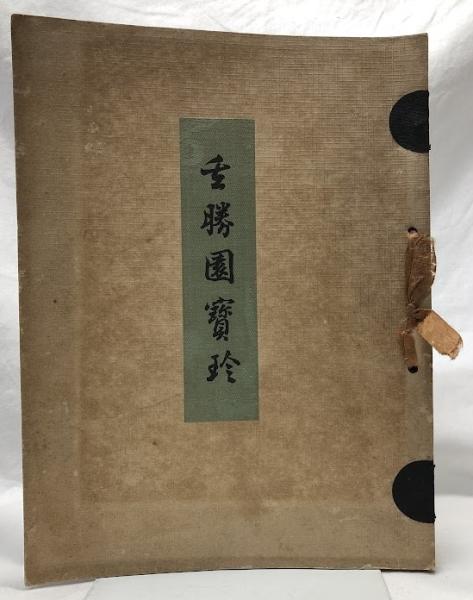 重勝園寶珍